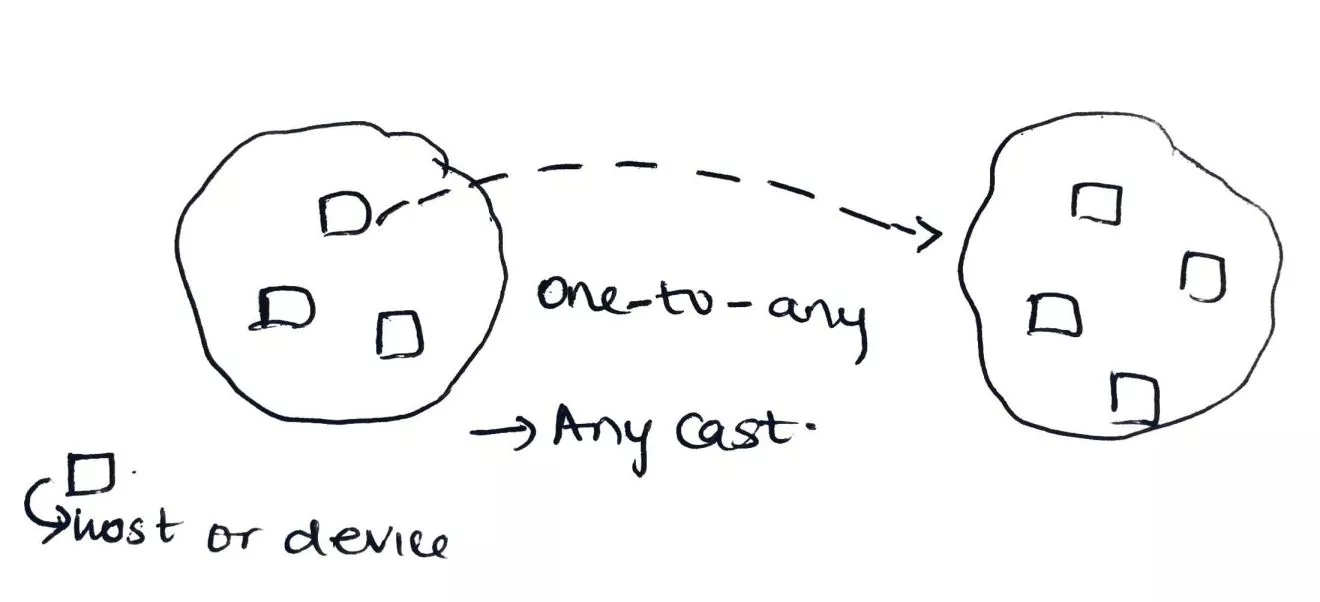 One-to-any
→ Any cast.
host or device